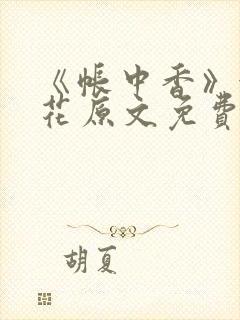 《帐中香》
花原文免费
胡夏